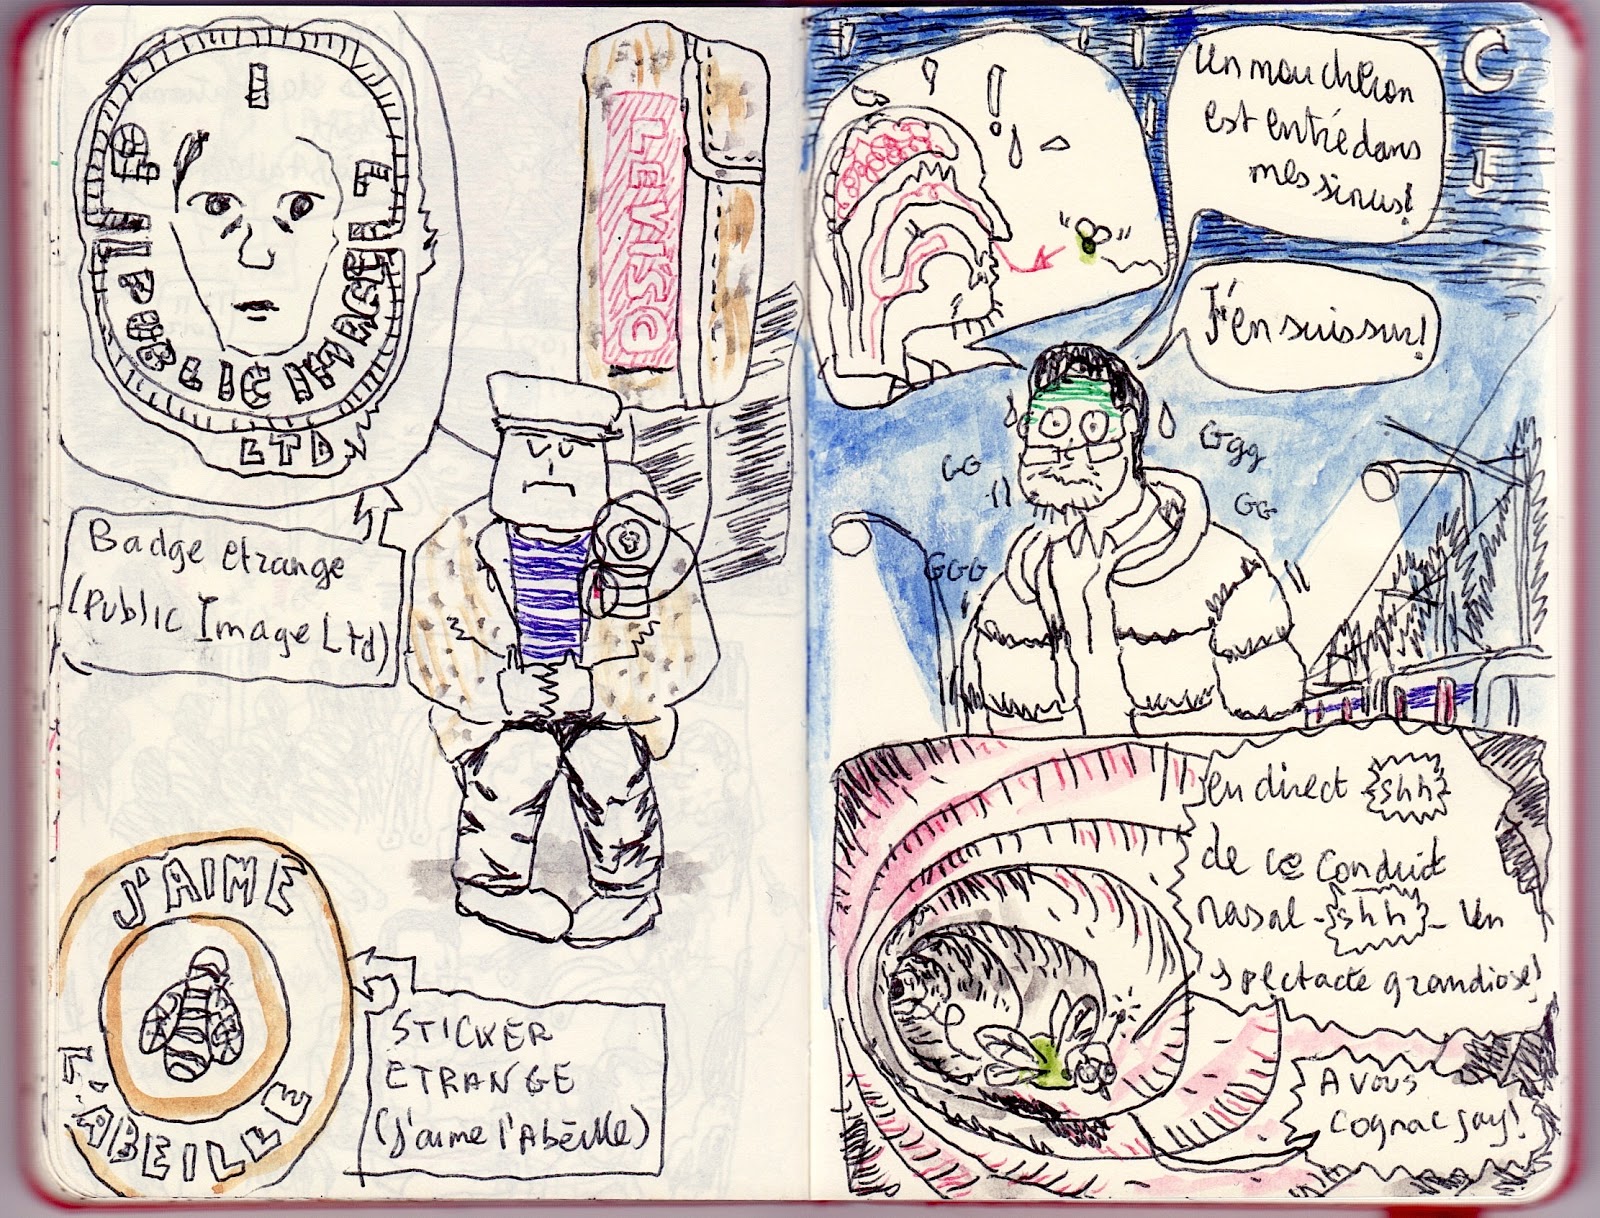 PUBLIC IMAGE
LTD
Badge etrange
(Public Image Ltd)
LEVISC
J'AIME
L'ABEILLE
STICKER
ETRANGE
(J'aime l'Abeille)
Un moucheron
est entré dans
mes sinus!
J'en suis sur!
GG
Ggg
GG
GGG
en direct shh
de ce conduit
nasal shh Un
spectacle grandiose!
A vous
Cognac Jay!